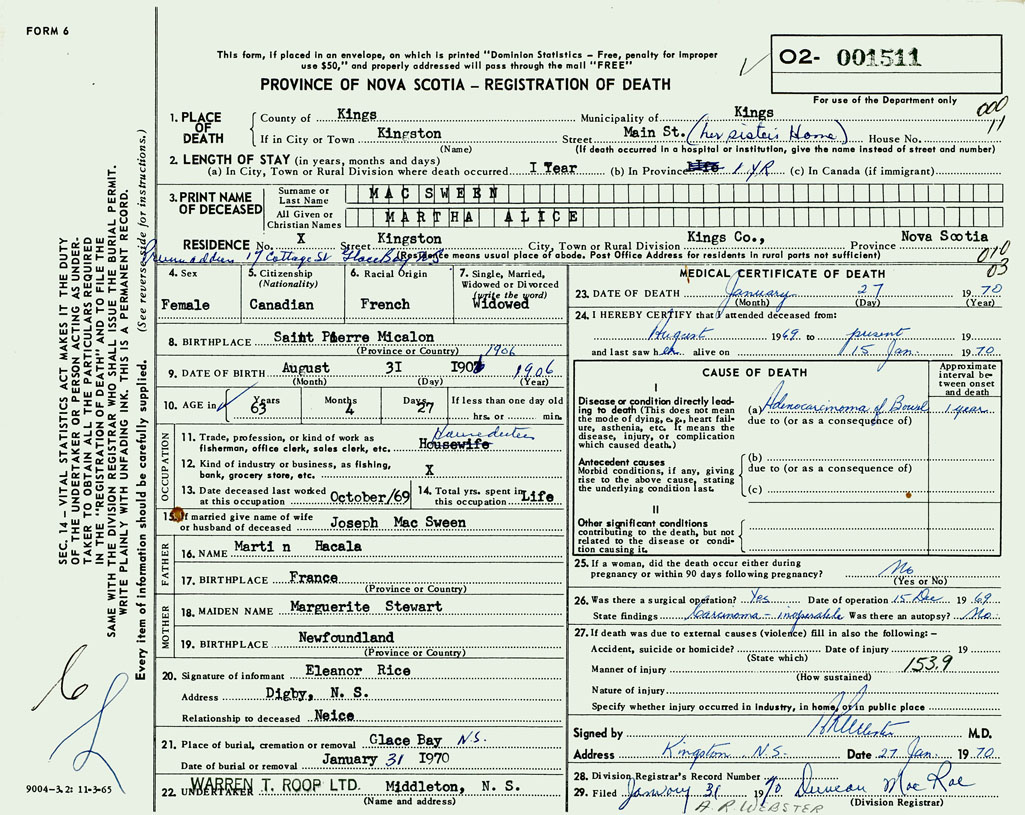 FORM 6
This form, if placed in an envelope, on which is printed "Dominion Statistics – Free, penalty for improper
use $50," and properly addressed will pass through the mail "FREE"
PROVINCE OF NOVA SCOTIA – REGISTRATION OF DEATH
O2- 001511
For use of the Department only
000
11
1. PLACE OF DEATH
County of Kings Municipality of Kings
If in City or Town Kingston Street Main St. (her sister's Home) House No.
(Name) (If death occurred in a hospital or institution, give the name instead of street and number)
2. LENGTH OF STAY (in years, months and days)
(a) In City, Town or Rural Division where death occurred I Year (b) In Province Life 1 YR (c) In Canada (if immigrant)
3. PRINT NAME OF DECEASED
Surname or Last Name MAC SWEEN
All Given or Christian Names MARTHA ALICE
RESIDENCE No. X Street Kingston City, Town or Rural Division Kings Co., Province Nova Scotia
17 Cottage St Glace Bay NS
(Residence means usual place of abode. Post Office Address for residents in rural parts not sufficient)
010
03
4. Sex
Female
5. Citizenship
(Nationality)
Canadian
6. Racial Origin
French
7. Single, Married,
Widowed or Divorced
(write the word)
Widowed
8. BIRTHPLACE Saint Pierre Micalon
(Province or Country)
1906
9. DATE OF BIRTH August 3I 190 1906
(Month) (Day) (Year)
10. AGE in Years 63 Months 4 Days 27 If less than one day old
hrs. or min.
OCCUPATION
11. Trade, profession, or kind of work as
fisherman, office clerk, sales clerk, etc. Housewife
Housedutees
12. Kind of industry or business, as fishing,
bank, grocery store, etc. X
13. Date deceased last worked
at this occupation October/69
14. Total yrs. spent in
this occupation Life
15. If married give name of wife
or husband of deceased Joseph Mac Sween
FATHER
16. NAME Marti n Hacala
17. BIRTHPLACE France
(Province or Country)
MOTHER
18. MAIDEN NAME Marguerite Stewart
19. BIRTHPLACE Newfoundland
(Province or Country)
20. Signature of informant Eleanor Rice
Address Digby, N. S.
Relationship to deceased Neice
21. Place of burial, cremation or removal Glace Bay N.S.
Date of burial or removal January 31 1970
22. UNDERTAKER WARREN T. ROOP LTD. Middleton, N. S.
(Name and address)
MEDICAL CERTIFICATE OF DEATH
23. DATE OF DEATH January 27 1970
(Month) (Day) (Year)
24. I HEREBY CERTIFY that I attended deceased from:
August 1969 to present 19
and last saw her alive on 15 Jan. 1970
CAUSE OF DEATH
Approximate
interval be-
tween onset
and death
I
Disease or condition directly lead-
ing to death (This does not mean
the mode of dying, e.g., heart fail-
ure, asthenia, etc. It means the
disease, injury, or complication
which caused death.)
(a) Adenocarcinoma of Bowel 1 year
due to (or as a consequence of)
Antecedent causes
Morbid conditions, if any, giving
rise to the above cause, stating
the underlying condition last.
(b)
due to (or as a consequence of)
(c)
II
Other significant conditions
contributing to the death, but not
related to the disease or condi-
tion causing it.
25. If a woman, did the death occur either during
pregnancy or within 90 days following pregnancy? No
(Yes or No)
26. Was there a surgical operation? Yes Date of operation 15 Dec 1969
State findings Carcinoma – inoperable Was there an autopsy? No
27. If death was due to external causes (violence) fill in also the following:–
Accident, suicide or homicide? Date of injury 19
(State which)
Manner of injury 153.9
(How sustained)
Nature of injury
Specify whether injury occurred in industry, in home, or in public place
Signed by M.D.
Address Kingston N.S. Date 27 Jan. 1970
28. Division Registrar's Record Number
29. Filed January 31 1970 Duncan MacRae
(Division Registrar)
A. R. WEBSTER
SEC. 14 – VITAL STATISTICS ACT MAKES IT THE DUTY
OF THE UNDERTAKER OR PERSON ACTING AS UNDER-
TAKER TO OBTAIN ALL THE PARTICULARS REQUIRED
IN THE "REGISTRATION OF DEATH" AND TO FILE THE
SAME WITH THE DIVISION REGISTRAR WHO SHALL ISSUE THE BURIAL PERMIT.
WRITE PLAINLY WITH UNFADING INK. THIS IS A PERMANENT RECORD.
Every item of information should be carefully supplied. (See reverse side for instructions.)
9004-3.2: 11-3-65